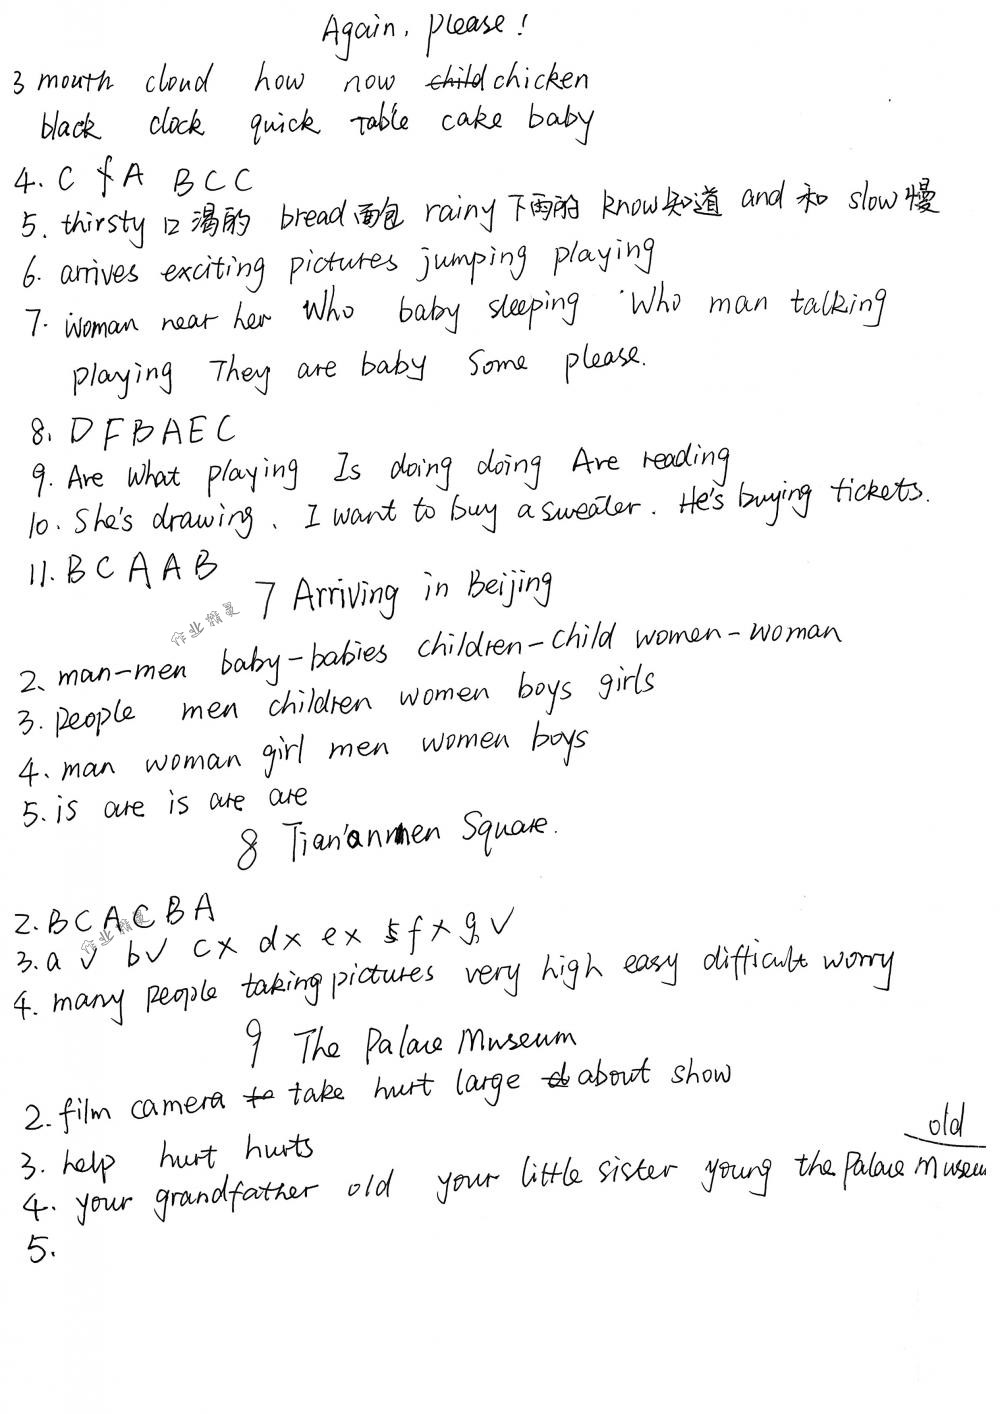 Again, please!
3 mouth cloud how now child chicken
black clock quick table cake baby
4. C A B C C
5. thirsty 口渴的 bread 面包 rainy 下雨的 know 知道 and 和 slow 慢
6. arrives exciting pictures jumping playing
7. woman near her Who baby sleeping Who man talking
playing They are baby Some please.
8. D F B A E C
9. Are What playing Is doing doing Are reading
10. She's drawing. I want to buy a sweater. He's buying tickets.
11. B C A A B
7 Arriving in Beijing
作业精灵
2. man-men baby-babies children-child women-woman
3. people men children women boys girls
4. man woman girl men women boys
5. is are is are are
8 Tian'anmen Square.
2. B C A C B A
作业精灵
3. a ✓ b ✓ c × d × e × f × g ✓
4. many people taking pictures very high easy difficult worry
9 The Palace Museum
2. film camera take hurt large about show
3. help hurt hurts
old
4. your grandfather old your little sister young the Palace Museum
5.